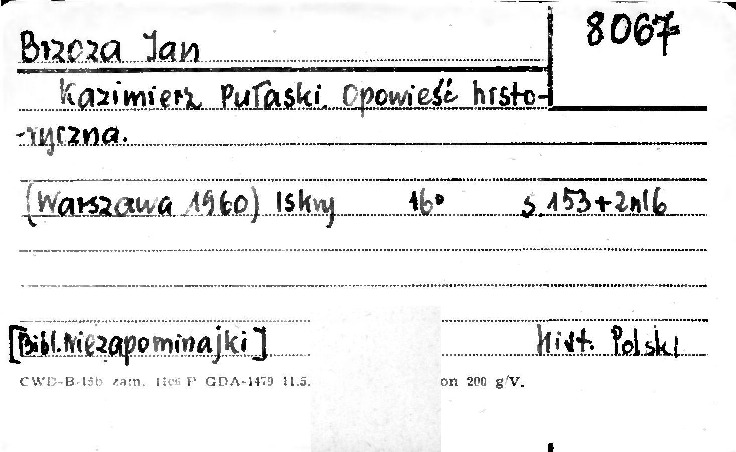 8067
Brzoza Jan
Kazimierz Pułaski. Opowieść histo-
-ryczna.
(Warszawa 1960) Iskry 16° s. 153+2nlb
[Bibl. Niezapominajki] hist. Polski
CWD-B-15b zam. P GDA-1479 11.5. on 200 g/V.